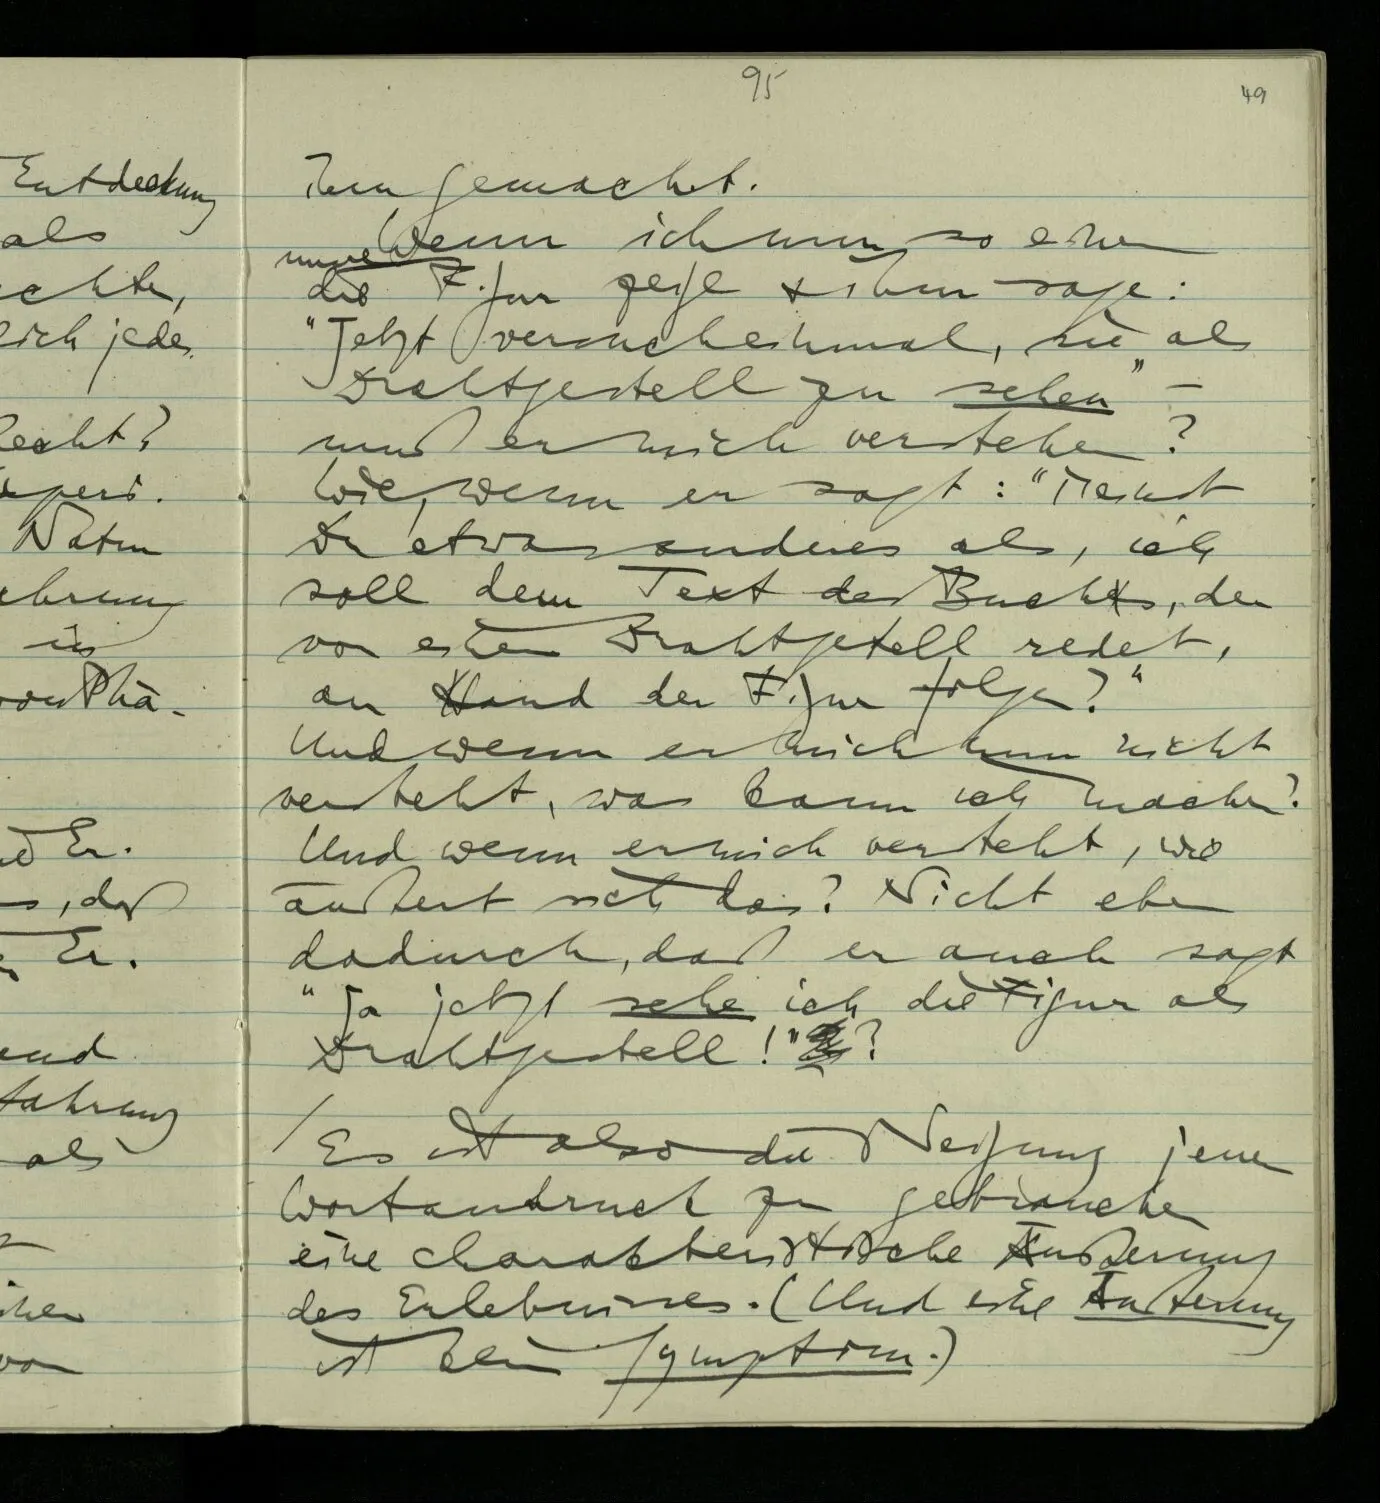 95
49
Entdeckung
als
echte,
sich jedes
Recht?
Experi.
Natur
in
von Phä-
Er.
, daß
Er.
end
fahrung
als
von
gemacht.
Wenn ich nun so einem
unsere
die Figur zeige & ihm sage:
"Jetzt versuch einmal, sie als
Drahtgestell zu sehen" –
muß er mich verstehen?
Wie, wenn er sagt: "Meinst
Du etwas anderes als, ich
soll dem Text des Buchs, der
von einem Drahtgestell redet,
an Hand der Figur folgen?"
Und wenn er mich nun nicht
versteht, was kann ich machen?
Und wenn er mich versteht, wie
äußert sich das? Nicht eben
dadurch, daß er auch sagt
"Ja jetzt sehe ich die Figur als
Drahtgestell!"?
/ Es ist also die Neigung jenen
Wortausdruck zu gebrauchen
eine charakteristische Äußerung
des Erlebnisses. (Und eine Äußerung
ist kein Symptom.)